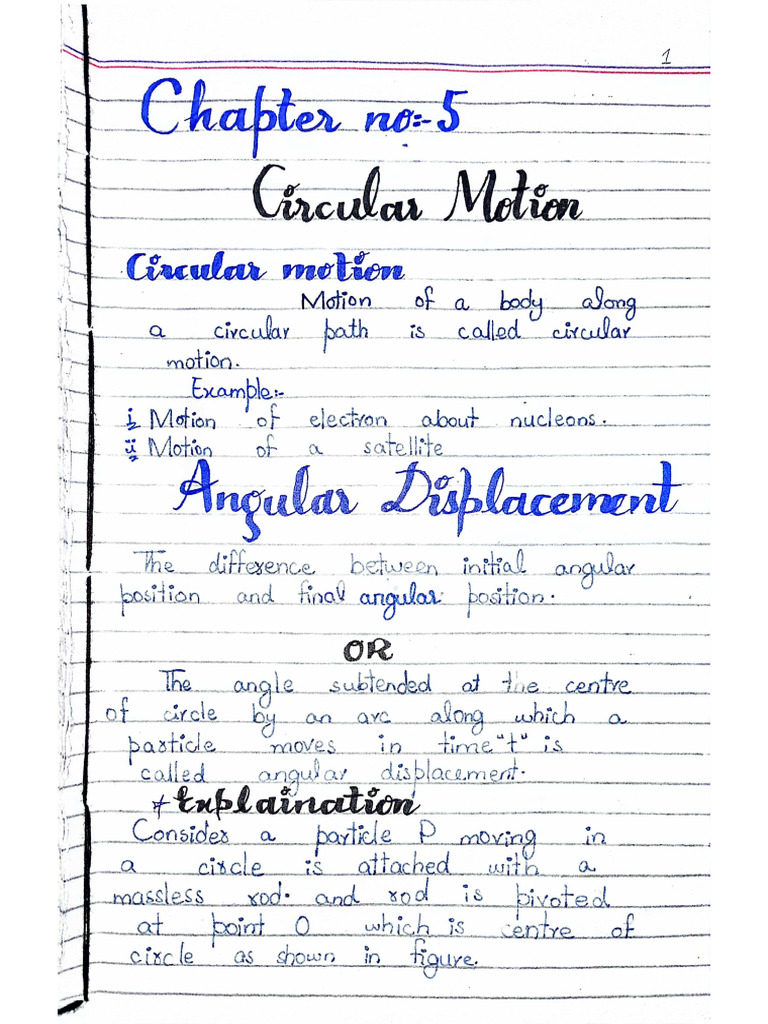 1
Chapter no:- 5
Circular Motion
Circular motion
Motion of a body along
a circular path is called circular
motion.
Example:-
i Motion of electron about nucleons.
ii Motion of a satellite
Angular Displacement
The difference between initial angular
position and final angular position.
OR
The angle subtended at the centre
of circle by an arc along which a
particle moves in time "t" is
called angular displacement.
* Explaination
Consider a particle P moving in
a circle is attached with a
massless rod. and rod is pivoted
at point O which is centre of
circle as shown in figure.